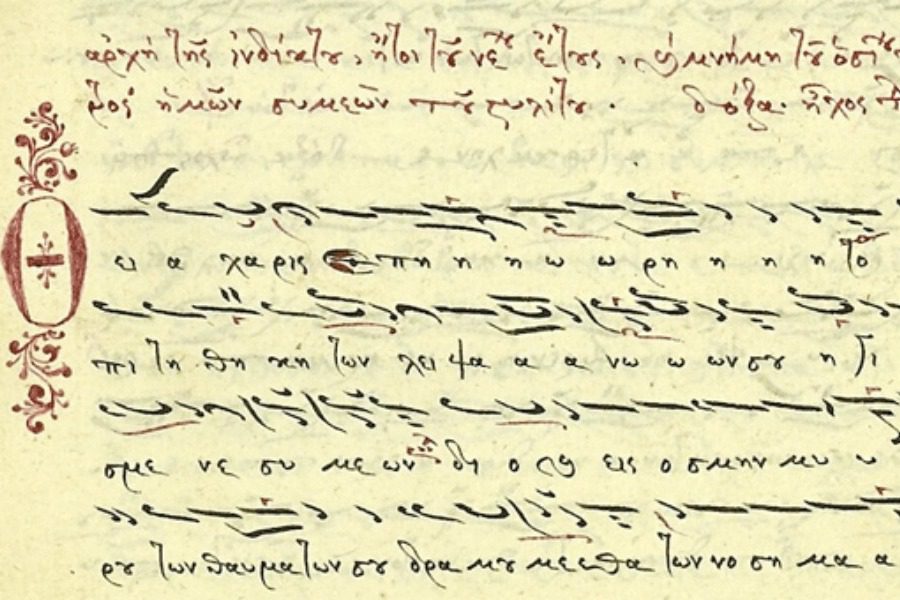 ἀρχὴ τῆς ἰνδίκτου, ἤτοι τοῦ νέου ἔτους, ἐν μνήμη τοῦ ὁσίου
ἡμῶν συμεὼν τοῦ στυλίτου. δόξα. ἦχος
Θ ει α χα ρις πη η η ω ω ρη η η η η το
πι τη θη κη των λει ψα α α νω ω ων σου η τι
σμε νε συ με ων δι ο εις ο σμην μυ υ
ρου των θαυμα των σου δρα μου με ε θα των νο ση μα α